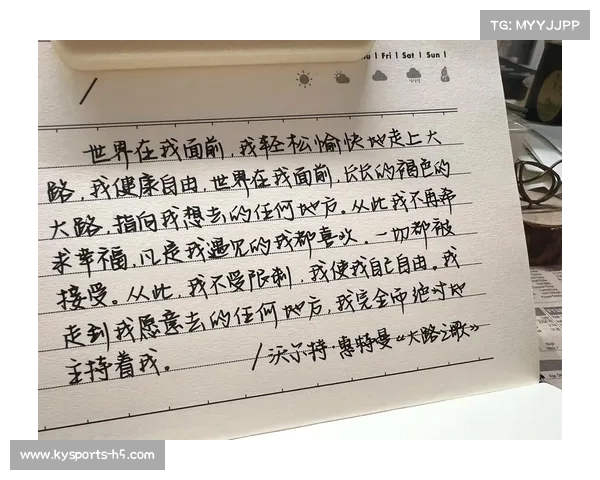 TG: MYYJJPP
Fri | Sat | Sun |
世界在我面前,我轻松愉快地走上大
路,我健康自由,世界在我面前,长长的褐色的
大路,指向我想去的任何地方。从此我不再希
求幸福,凡是我遇见的我都喜欢,一切都被
接受。从此,我不受限制,我使我自己自由。我
走到我愿意去的任何地方,我完全而绝对地
主持着我。
/沃尔特·惠特曼《大路之歌》
www.kysports-h5.com